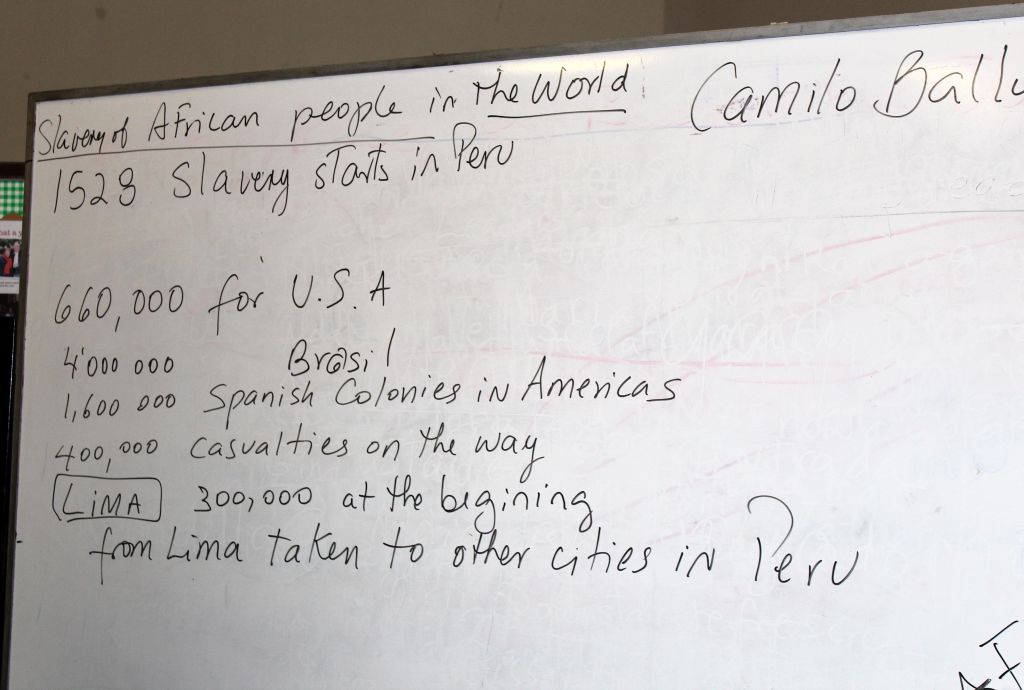 Slavery of African people in the World
Camilo Ballu
1528 Slavery starts in Peru
660,000 for U.S.A
4'000 000 Brasil
1,600 000 Spanish Colonies in Americas
400,000 casualties on the way
LiMA 300,000 at the begining
from Lima taken to other cities in Peru